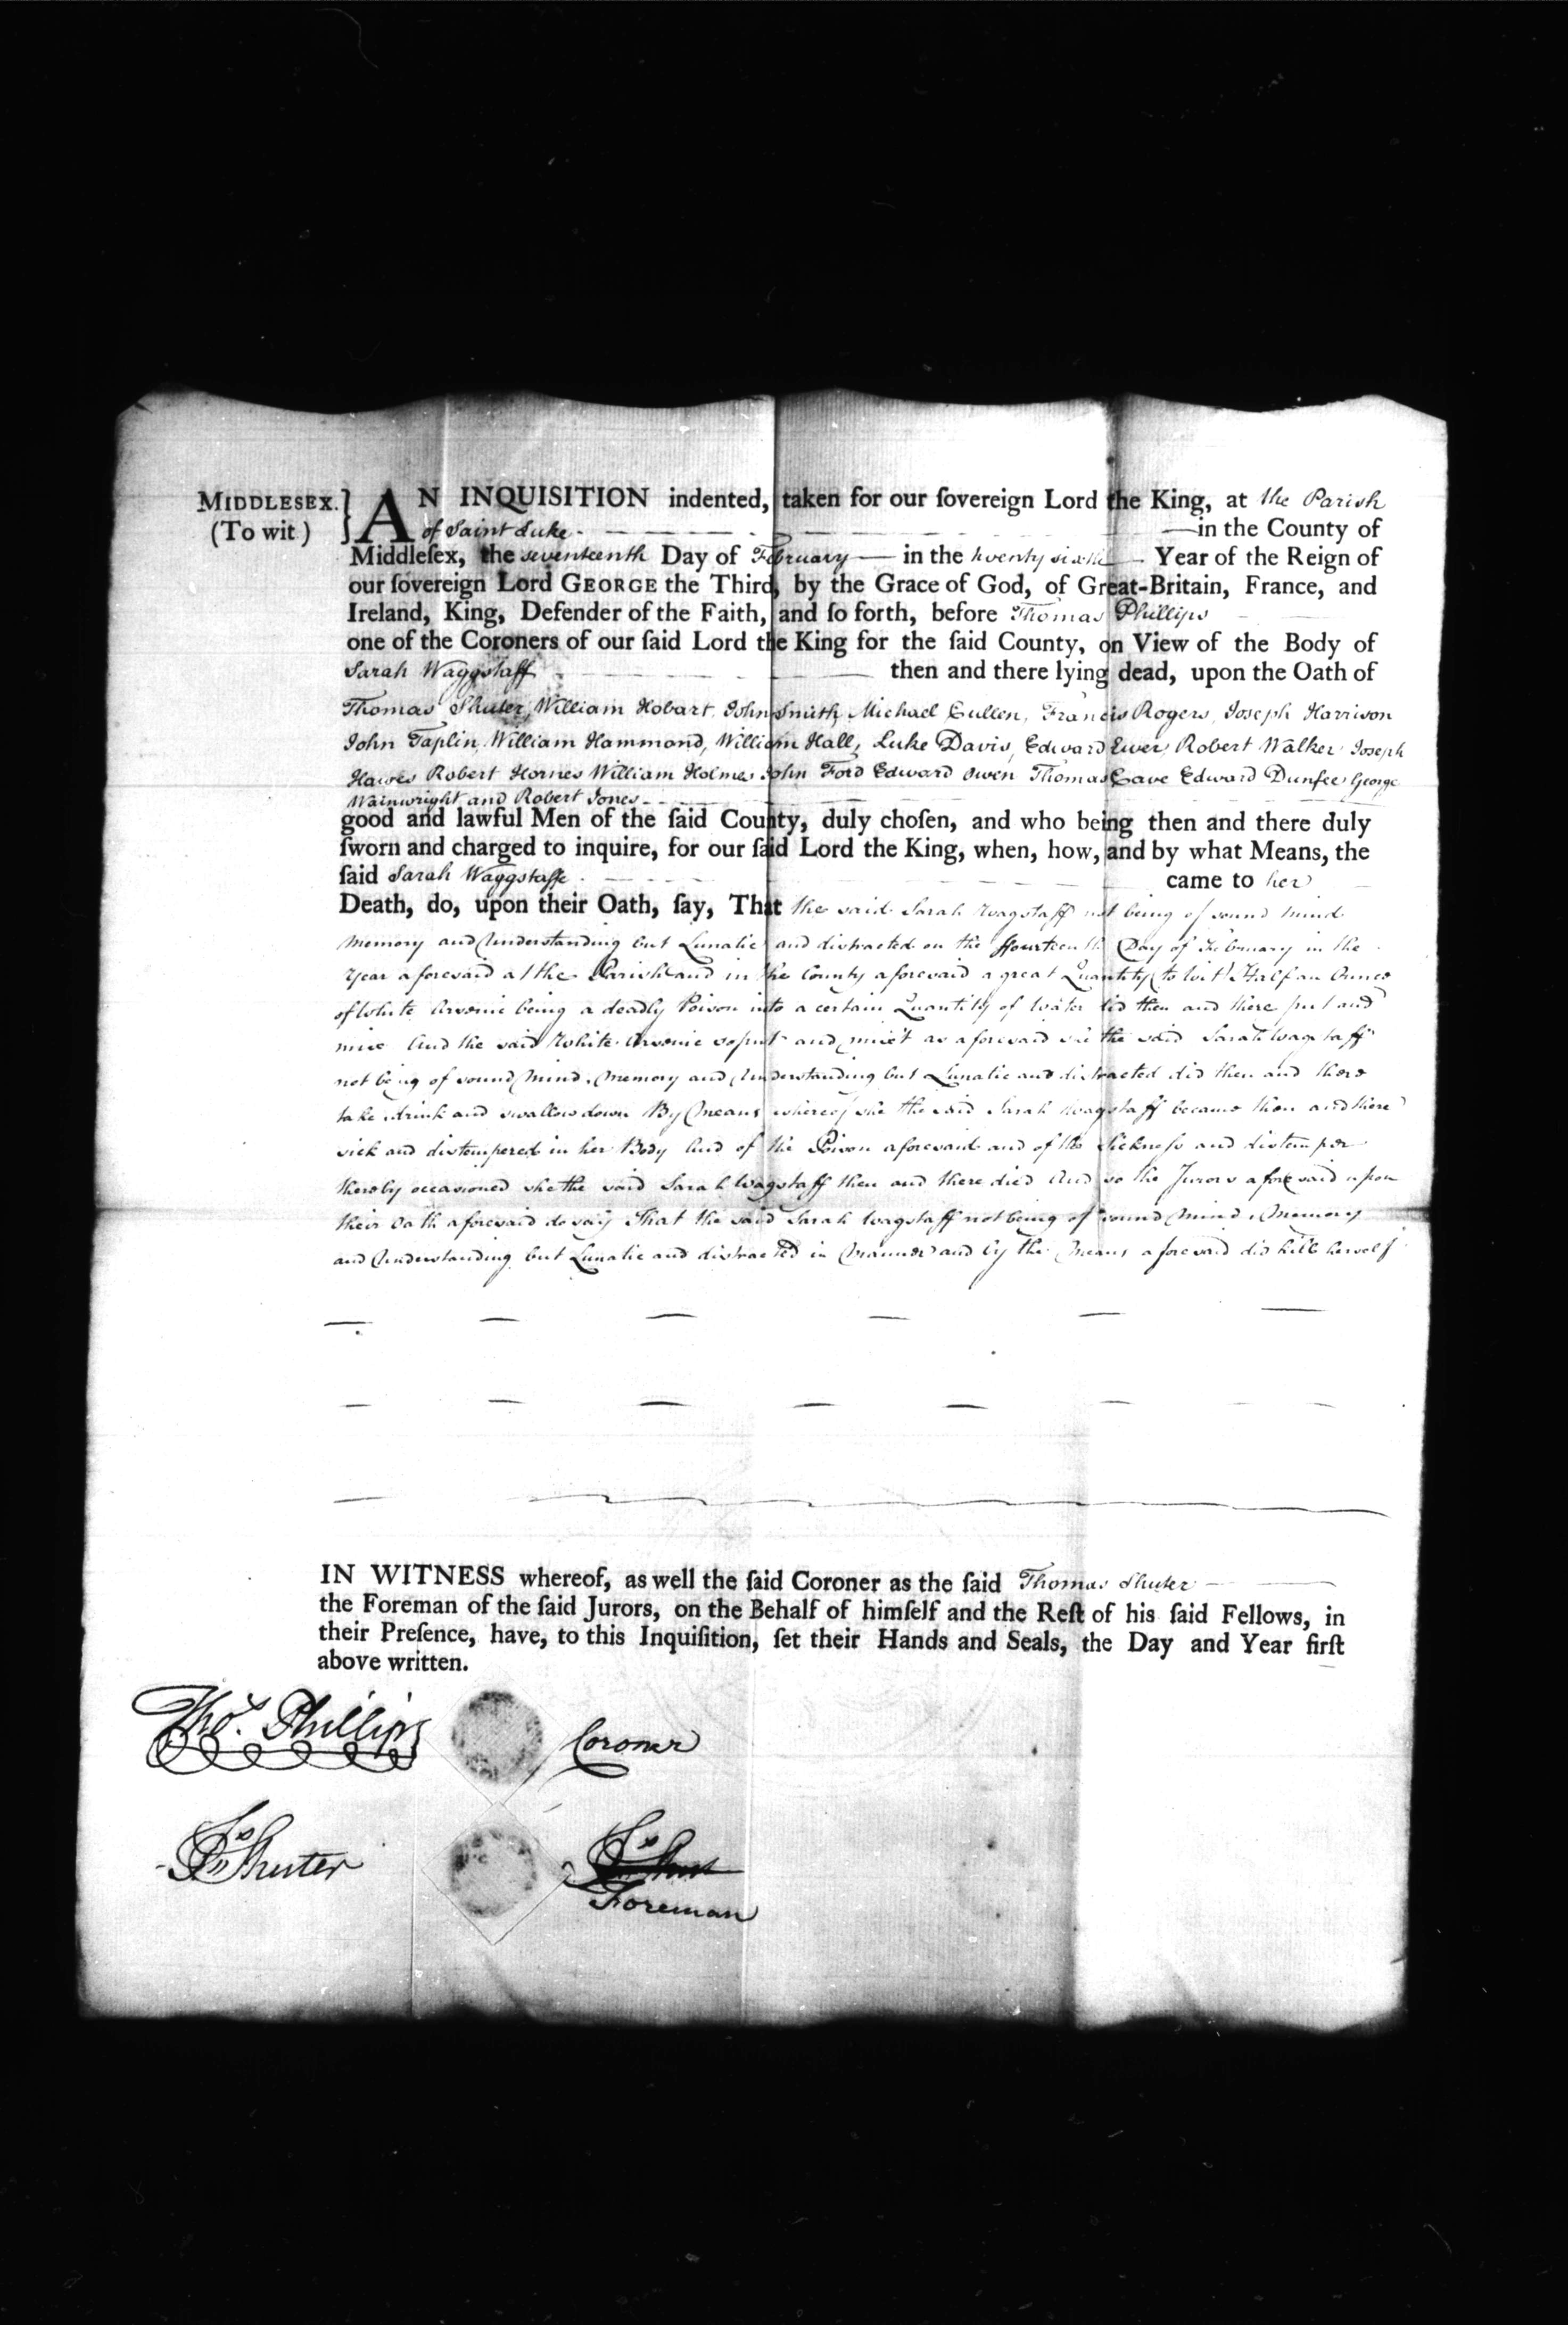 MIDDLESEX. } AN INQUISITION indented, taken for our ſovereign Lord the King, at the Parish
(To wit) of Saint Luke in the County of
Middleſex, the seventeenth Day of February in the twenty sixth Year of the Reign of
our ſovereign Lord GEORGE the Third, by the Grace of God, of Great-Britain, France, and
Ireland, King, Defender of the Faith, and ſo forth, before Thomas Phillips
one of the Coroners of our ſaid Lord the King for the ſaid County, on View of the Body of
Sarah Waggstaff then and there lying dead, upon the Oath of
Thomas Shuter, William Hobart, John Smith, Michael Cullen, Francis Rogers, Joseph Harrison
John Taplin, William Hammond, William Hall, Luke Davis, Edward Ewer, Robert Walker Joseph
Hawes Robert Hornes William Holmes John Ford Edward Owen Thomas Cave Edward Dunfee George
Wainwright and Robert Jones
good and lawful Men of the ſaid County, duly choſen, and who being then and there duly
ſworn and charged to inquire, for our ſaid Lord the King, when, how, and by what Means, the
ſaid Sarah Waggstaffe came to her
Death, do, upon their Oath, ſay, That the said Sarah Wagstaff not being of sound mind
memory and Understanding but Lunatic and distracted on the ffourteenth Day of February in the
Year aforesaid at the Parish and in the County aforesaid a great Quantity to wit Half an Ounce
of White Arsenic being a deadly Poison into a certain Quantity of Water did then and there put and
mix And the said White Arsenic so put and mix't as aforesaid she the said Sarah Wagstaff
not being of sound Mind, Memory and Understanding but Lunatic and distracted did then and there
take drink and swallow down By Means whereof she the said Sarah Wagstaff became then and there
sick and distempered in her Body And of the Poison aforesaid and of the Sickness and distemper
thereby occasioned she the said Sarah Wagstaff then and there died And so the Jurors aforesaid upon
their Oath aforesaid do say That the said Sarah Wagstaff not being of sound Mind, Memory
and Understanding but Lunatic and distracted in Manner and by the Means aforesaid did kill herself
IN WITNESS whereof, as well the ſaid Coroner as the ſaid Thomas Shuter
the Foreman of the ſaid Jurors, on the Behalf of himſelf and the Reſt of his ſaid Fellows, in
their Preſence, have, to this Inquiſition, ſet their Hands and Seals, the Day and Year firſt
above written.
Tho.s Phillips Coroner
Tho.s Shuter
Foreman